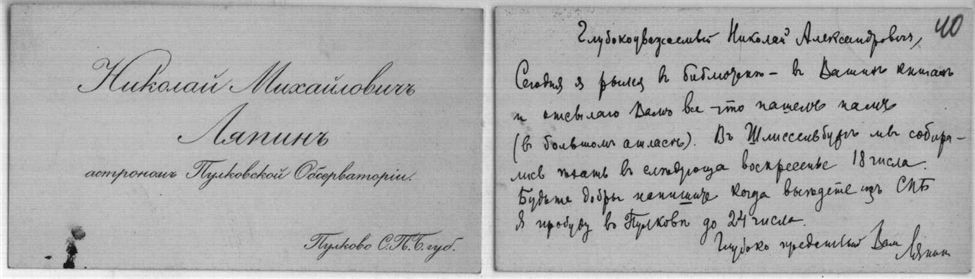 Николай Михайловичъ
Ляпинъ
астрономъ Пулковской Обсерваторіи.
Пулково С.П.Б. губ.
40
Глубокоуважаемый Николай Александровичъ,
Сегодня я рылся в библіотекѣ – в Вашихъ книгахъ
и отсылаю Вамъ все – что нашелъ тамъ
(в большомъ атласѣ). Въ Шлиссельбургъ мы собира-
лись ѣхать в воскресенье 18 числа.
Будьте добры напишите когда выѣдете изъ СПБ
Я пробуду в Пулковѣ до 24 числа.
Глубоко преданный Вам
Ляпин